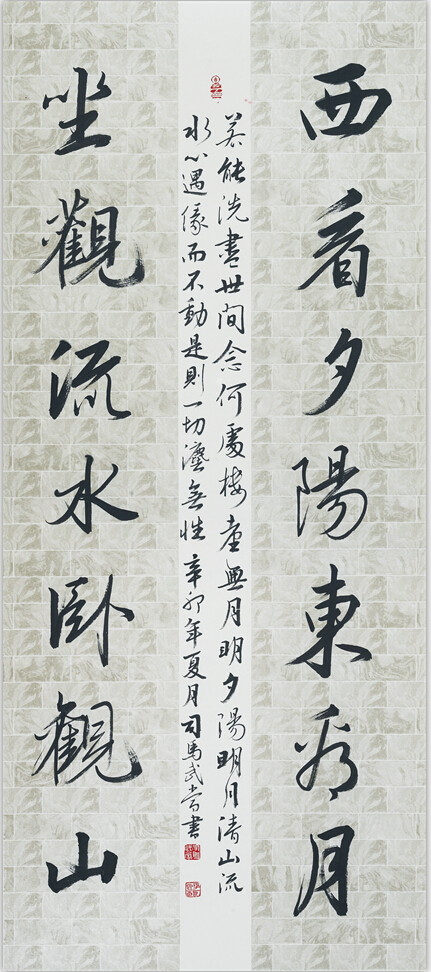 西看夕陽東看月
若能洗盡世間念何處樓臺無月明夕陽明月清山流
水心遇緣而不動是則一切法無性 辛卯年夏月司馬武當書
坐觀流水臥觀山